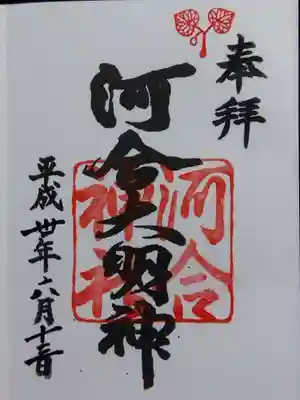 奉拝
河合大明神
河合神社
平成卅年六月十一日